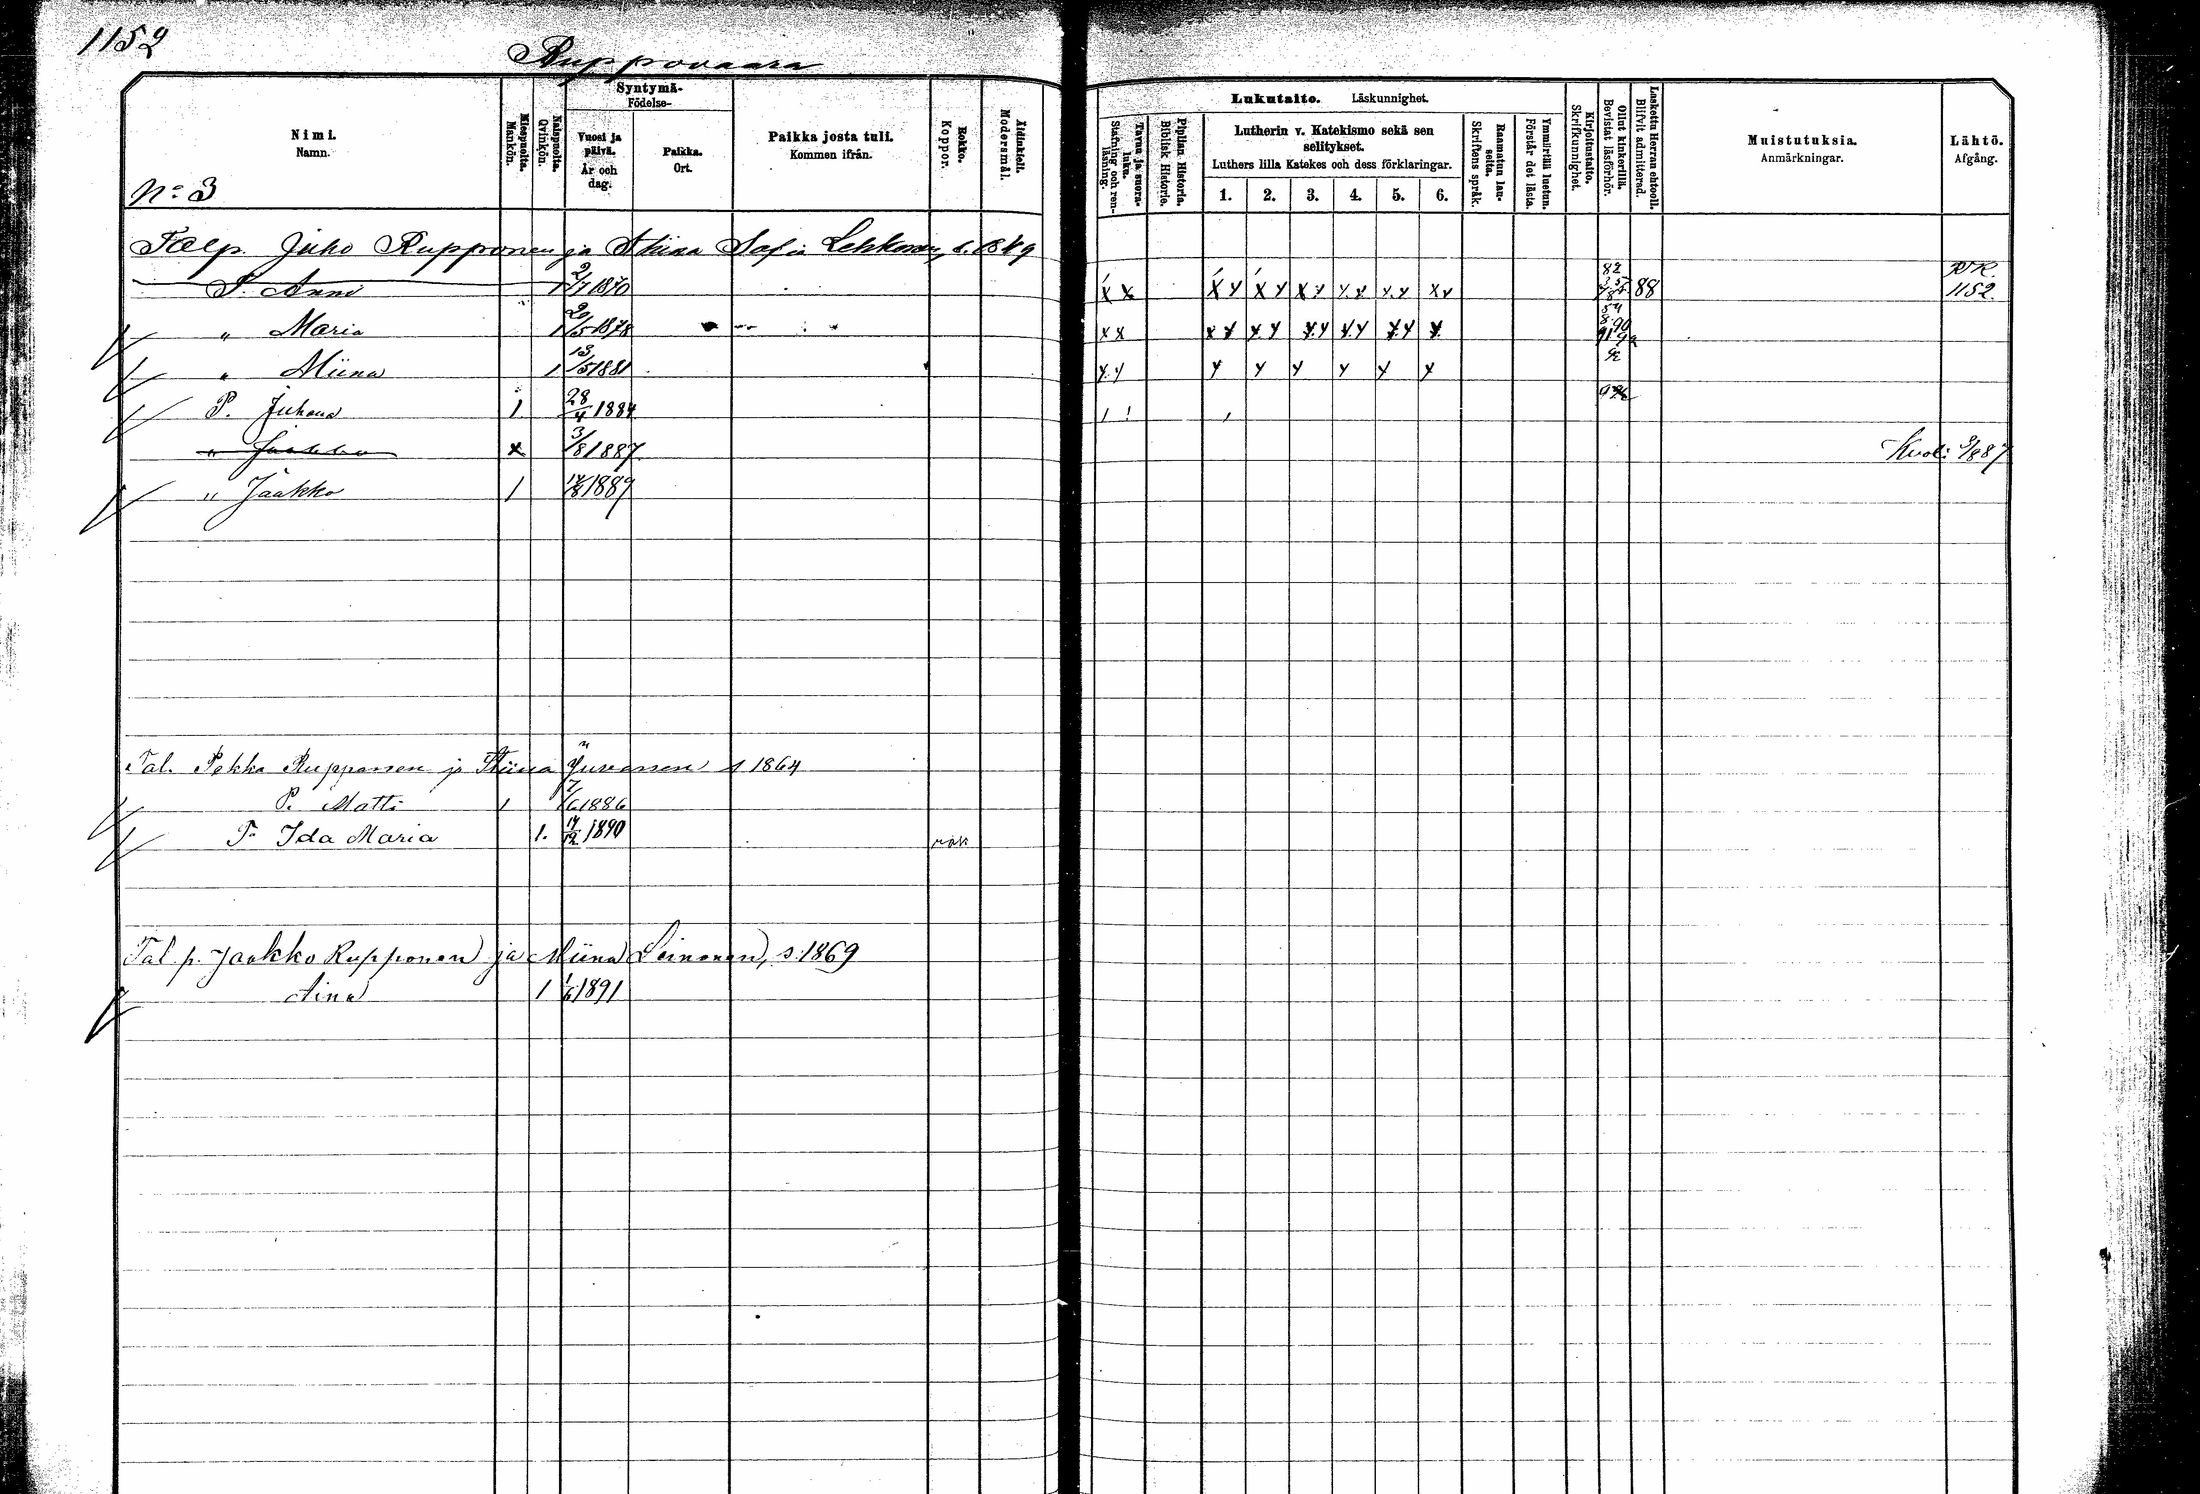 1152
Ruppovaara
Nimi.
Namn.
Miespuolta.
Mankön.
Naispuolta.
Qvinkön.
Syntymä-
Födelse-
Vuosi ja päivä.
År och dag.
Paikka.
Ort.
Paikka josta tuli.
Kommen ifrån.
Rokko.
Koppor.
Äidinkieli.
Modersmål.
Lukutaito. Läskunnighet.
Tavuu ja suora-luku.
Stafning och ren-läsning.
Piplian Historia.
Biblisk Historie.
Lutherin v. Katekismo sekä sen selitykset.
Luthers lilla Katekes och dess förklaringar.
1. 2. 3. 4. 5. 6.
Raamatun lau-seita.
Skriftens språk.
Ymmärtää luetun.
Förstår det lästa.
Kirjoitustaito.
Skrifkunnighet.
Ollut kinkerillä.
Bevistat läsförhör.
Laskettu Herran ehtooll.
Blifvit admitterad.
Muistutuksia.
Anmärkningar.
Lähtö.
Afgång.
No: 3
Talp. Juho Rupponen ja Stiina Sofia Lehkonen, s. 1849
T. Anni 1 2/7 1870 x x x y x y x y x y x y x y 82 88 RK. 1152.
" Maria 1 20/5 1878 x x x x x y x y x y x y x 90
" Miina 1 13/5 1881 x y y y y y y y 92
P. Juhana 1. 28/4 1884
" Jaakko x 3/8 1887. Kuol: 9/8 87
" Jaakko 1 14/8 1889
Tal. Pekka Rupponen ja Stiina Juvonen s 1864
P. Matti 1 7/6 1886
T. Ida Maria 1. 14/12 1890 rok
Tal. p. Jaakko Rupponen ja Miina Leinonen, s. 1869
Aina 1 1/6 1891